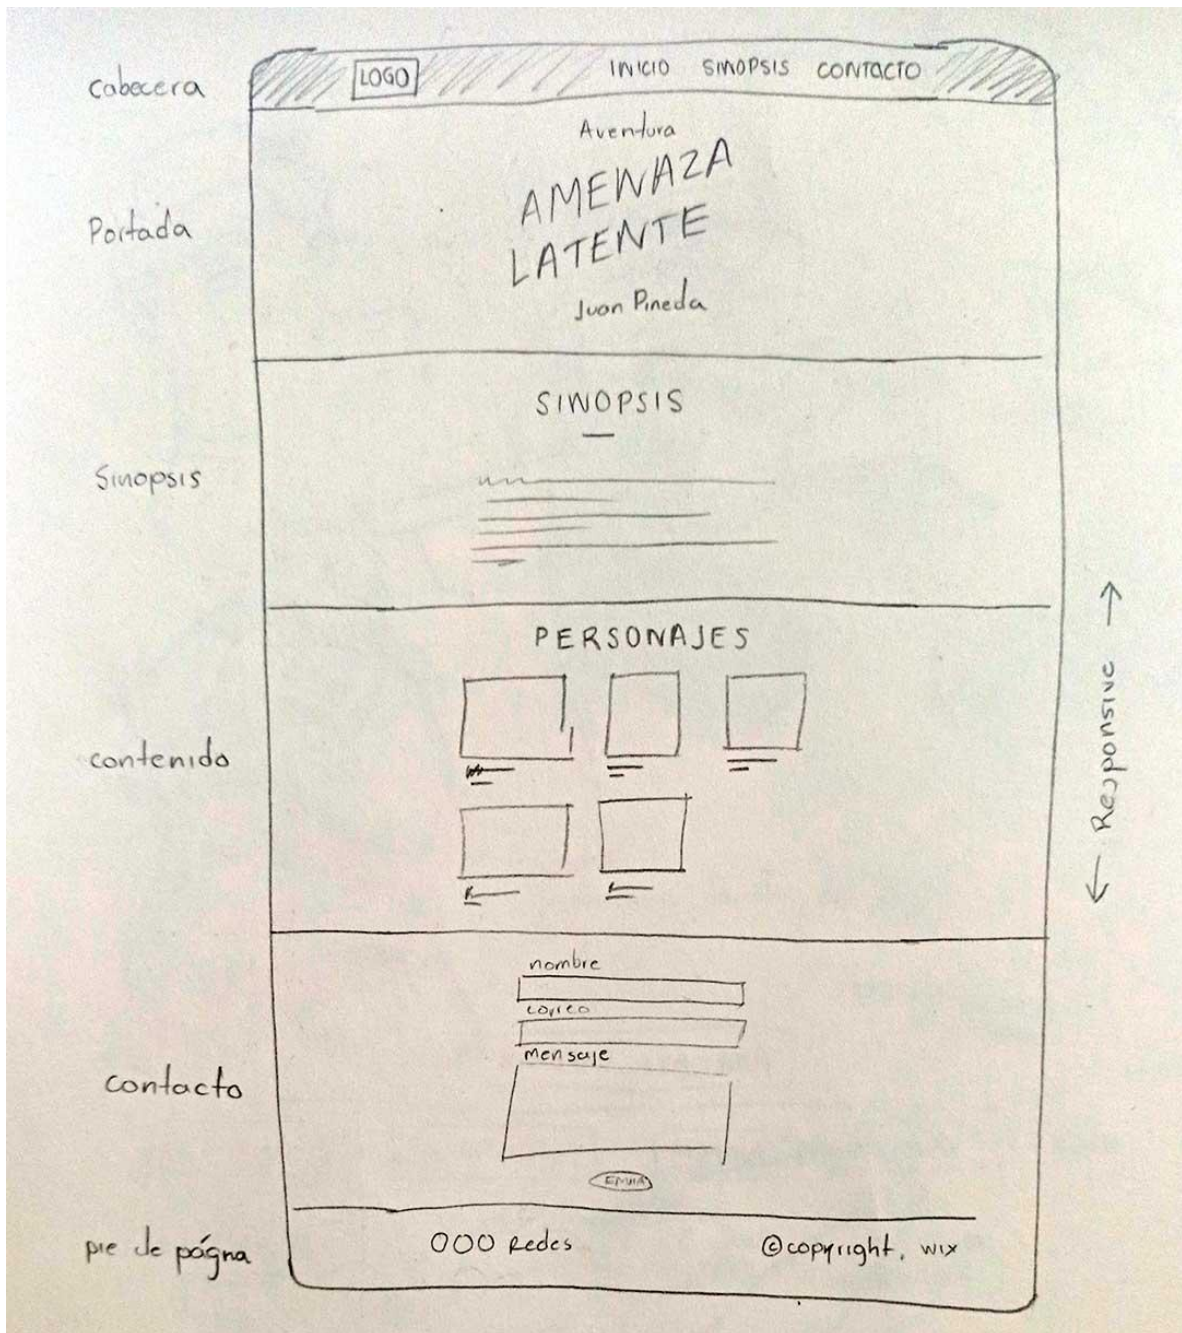 cabecera
LOGO
INICIO SINOPSIS CONTACTO
Portada
Aventura
AMENAZA
LATENTE
Juan Pineda
Sinopsis
SINOPSIS
contenido
PERSONAJES
← Responsive →
contacto
nombre
correo
mensaje
ENVIA
pie de página
OOO Redes
©copyright. wix